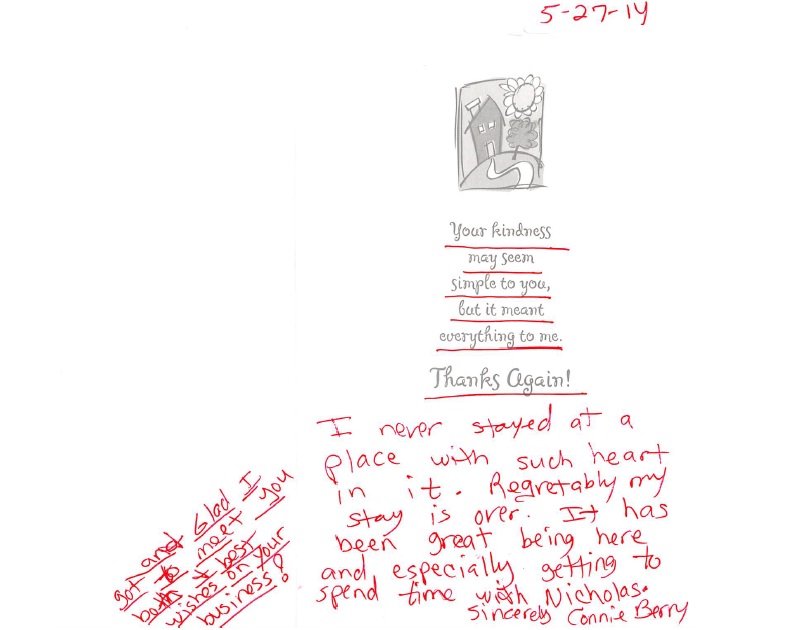 5-27-14
Your kindness
may seem
simple to you,
but it meant
everything to me.
Thanks Again!
I never stayed at a
place with such heart
in it. Regretably my
stay is over. It has
been great being here
and especially getting to
spend time with Nicholas.
Sincerely Connie Berry
and Glad I
got to meet you
both & best
wishes on your
business!